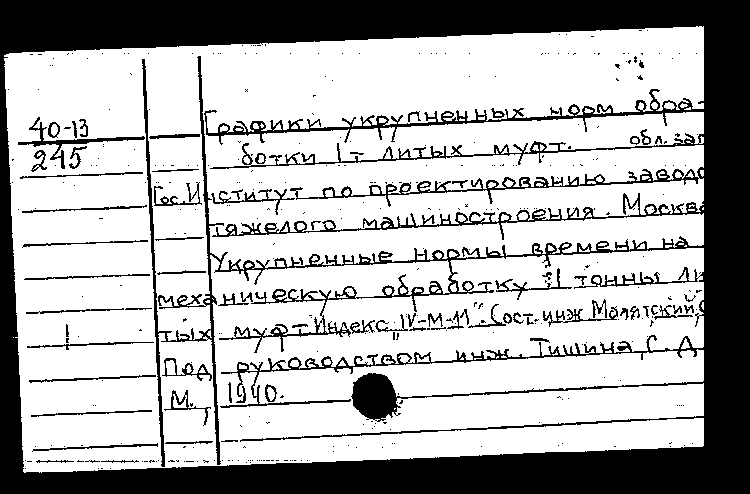 40-13
245
Графики укрупненных норм обра-
ботки 1 т литых муфт. обл. заг
Гос. Институт по проектированию заводо
тяжелого машиностроения. Москва
Укрупненные нормы времени на
механическую обработку 1 тонны ли
тых муфт Индекс „IV-М-11". Сост. инж Малятский,
Под руководством инж. Тишина, С. Д
М., 1940.